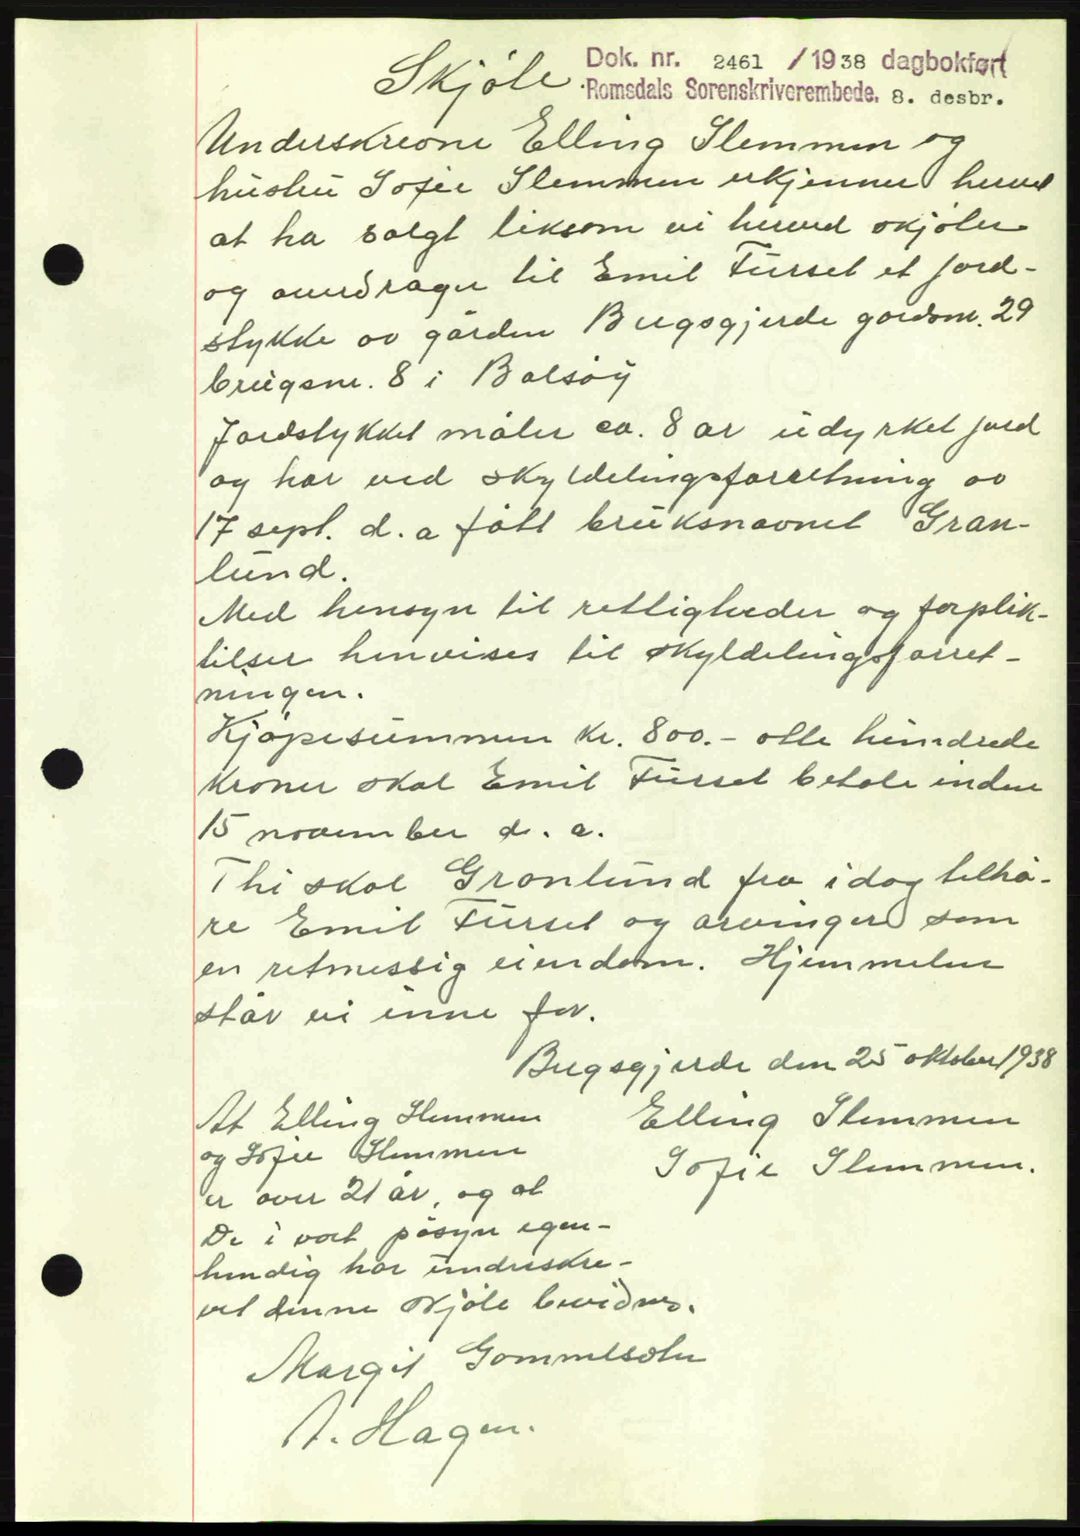 Skjöte
Dok. nr. 2461 /1938 dagbokført
Romsdals Sorenskriverembede. 8. desbr.
Underskrevne Elling Slemmen og
hustru Sofie Slemmen erkjenner herved
at ha solgt liksom vi herved skjöter
og overdrager til Emil Furset et jord-
stykke av gården Bugsgjerde gårdsnr. 29
brugsnr. 8 i Bolsöy
Jordstykket måler ca. 8 ar udyrket jord
og har ved skyldelingsforretning av
17 sept. d. a fått bruksnavnet Gran-
lund.
Med hensyn til rettigheder og forplik-
telser henvises til skyldelingsforret-
ningen.
Kjöpesummen kr. 800.- otte hundrede
kroner skal Emil Furset betale inden
15 november d. a.
Thi skal Granlund fra idag tilhö-
re Emil Furset og arvinger som
en retmessig eiendom. Hjemmelen
står vi inne for.
Bugsgjerde den 25 oktober 1938
Elling Slemmen
Sofie Slemmen.
At Elling Slemmen
og Sofie Slemmen
er over 21 år, og at
De i vort påsyn egen-
hendig har underskre-
vet denne skjöte bevidnes.
Margit Gommesæter
A. Hagen.